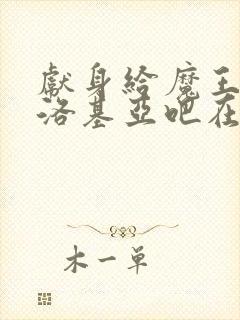 獻身給魔王
洛基亞吧在
木一單